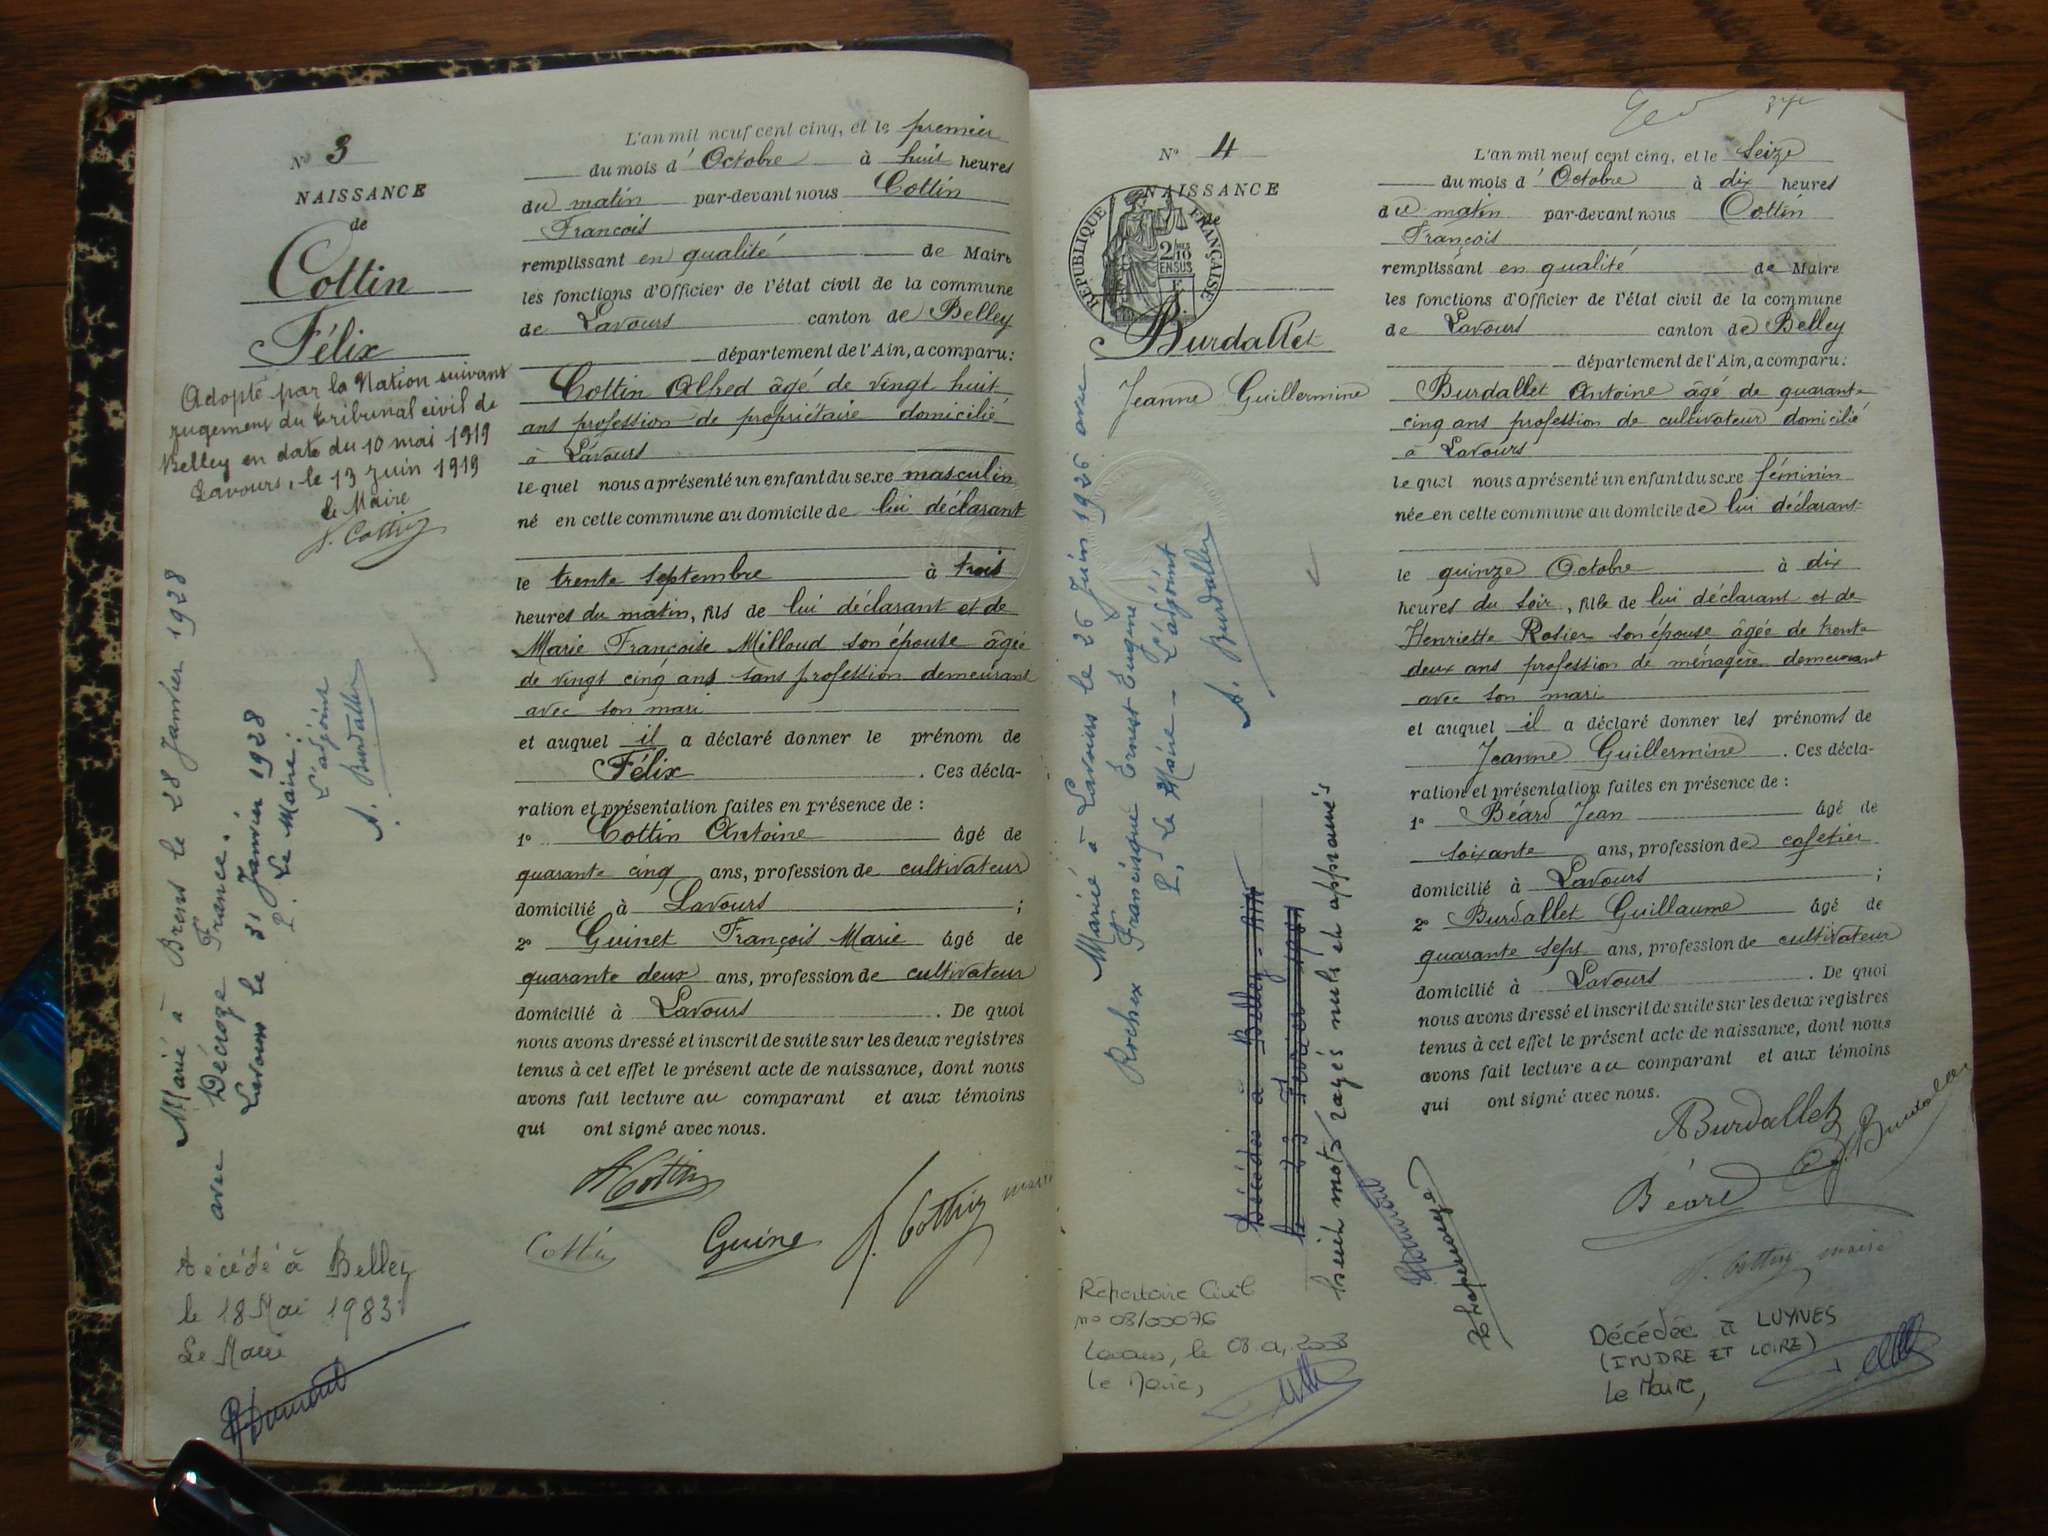 N° 3
NAISSANCE
de
Cottin
Félix
Adopté par la Nation suivant
jugement du tribunal civil de
Belley en date du 10 mai 1919
Lavours, le 13 juin 1919
le Maire
F. Cottin
Marié à Brens le 28 Janvier 1928
avec Décroze France.
Lavours le 31 Janvier 1928
P. Le Maire:
L'adjoint
A. Burdallet
Décédé à Belley
le 18 Mai 1983
Le Maire
L'an mil neuf cent cinq, et le premier
du mois d'Octobre à huit heures
du matin par-devant nous Cottin
François
remplissant en qualité de Maire
les fonctions d'Officier de l'état civil de la commune
de Lavours canton de Belley
département de l'Ain, a comparu:
Cottin Alfred âgé de vingt huit
ans profession de propriétaire domicilié
à Lavours
lequel nous a présenté un enfant du sexe masculin
né en cette commune au domicile de lui déclarant
le trente septembre à trois
heures du matin, fils de lui déclarant et de
Marie Françoise Milloud son épouse âgée
de vingt cinq ans sans profession demeurant
avec son mari
et auquel il a déclaré donner le prénom de
Félix. Ces décla-
ration et présentation faites en présence de :
1° Cottin Antoine âgé de
quarante cinq ans, profession de cultivateur
domicilié à Lavours ;
2° Guinet François Marie âgé de
quarante deux ans, profession de cultivateur
domicilié à Lavours. De quoi
nous avons dressé et inscrit de suite sur les deux registres
tenus à cet effet le présent acte de naissance, dont nous
avons fait lecture au comparant et aux témoins
qui ont signé avec nous.
A Cottin
Cottin Guinet F. Cottin maire
N° 4
NAISSANCE
de
RÉPUBLIQUE FRANÇAISE
2/10 EN SUS
Burdallet
Jeanne Guillermine
Mariée à Lavours le 26 Juin 1926 avec
Rochex Francisque Ernest Eugène
P. Le Maire - L'adjoint
A. Burdallet
Décédée à Belley - Ain
huit mots rayés nuls et approuvés
Répertoire Civil
n° 03/00076
Le Maire,
L'an mil neuf cent cinq, et le seize
du mois d'Octobre à dix heures
du matin par-devant nous Cottin
François
remplissant en qualité de Maire
les fonctions d'Officier de l'état civil de la commune
de Lavours canton de Belley
département de l'Ain, a comparu:
Burdallet Antoine âgé de quarante
cinq ans profession de cultivateur domicilié
à Lavours
lequel nous a présenté un enfant du sexe féminin
née en cette commune au domicile de lui déclarant
le quinze Octobre à dix
heures du soir, fille de lui déclarant et de
Henriette Rosier son épouse âgée de trente
deux ans profession de ménagère demeurant
avec son mari
et auquel il a déclaré donner les prénoms de
Jeanne Guillermine. Ces décla-
ration et présentation faites en présence de :
1° Béard Jean âgé de
soixante ans, profession de cafetier
domicilié à Lavours ;
2° Burdallet Guillaume âgé de
quarante sept ans, profession de cultivateur
domicilié à Lavours. De quoi
nous avons dressé et inscrit de suite sur les deux registres
tenus à cet effet le présent acte de naissance, dont nous
avons fait lecture au comparant et aux témoins
qui ont signé avec nous.
A Burdallet
G. Burdallet
Béard
F. Cottin maire
Décédée à LUYNES
(INDRE ET LOIRE)
Le Maire,